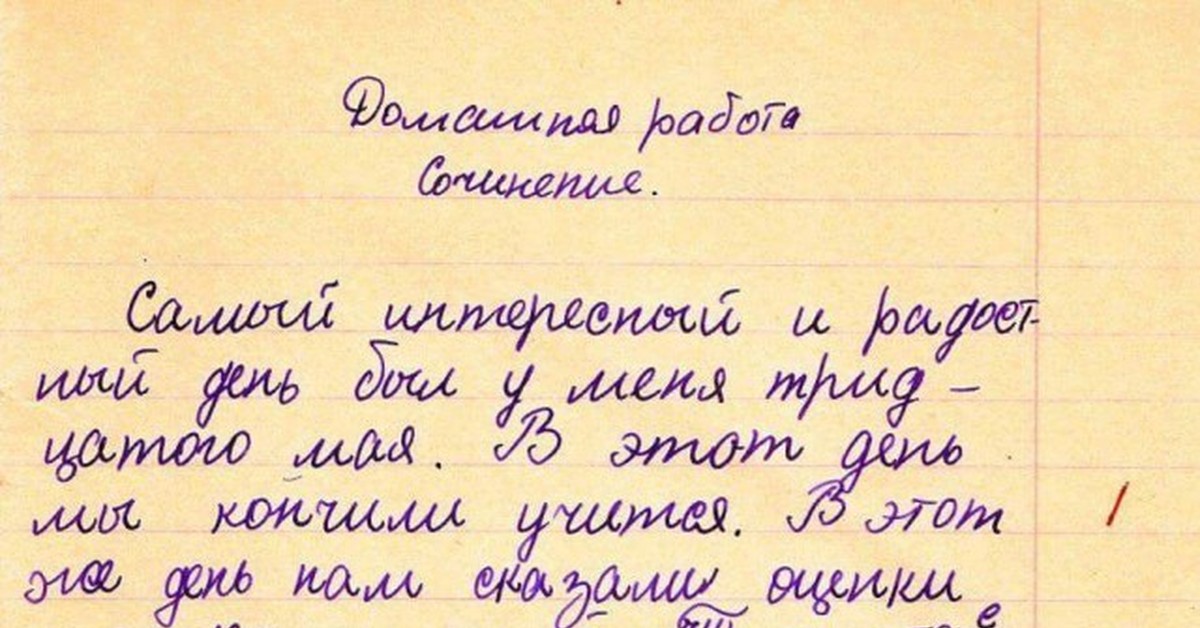 Домашняя работа
Сочинение.
Самый интересный и радост-
ный день был у меня трид-
цатого мая. В этот день
мы кончили учится. В этот
же день нам сказали оценки